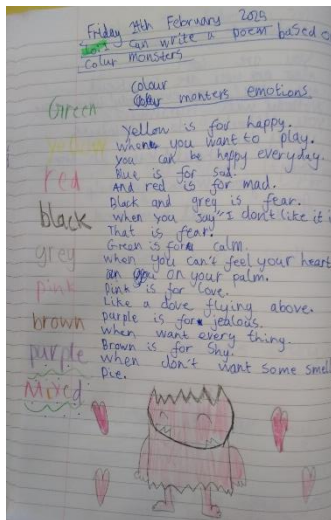 Friday 14th February 2025
can write a poem based o
colur monsters
colour
monters emotions
Green
yellow
red
black
grey
pink
brown
purple
Mixed
Yellow is for happy.
When you want to play.
you can be happy everyday.
Blue is for sad.
And red is for mad.
Black and grey is fear.
when you say "I don't like it
That is fear.
Green is for calm.
when you can't feel your heart
on your palm.
Pink is for love.
Like a dove flying above.
purple is for jealous.
when want every thing.
Brown is for Shy.
when don't want some smell
Pie.